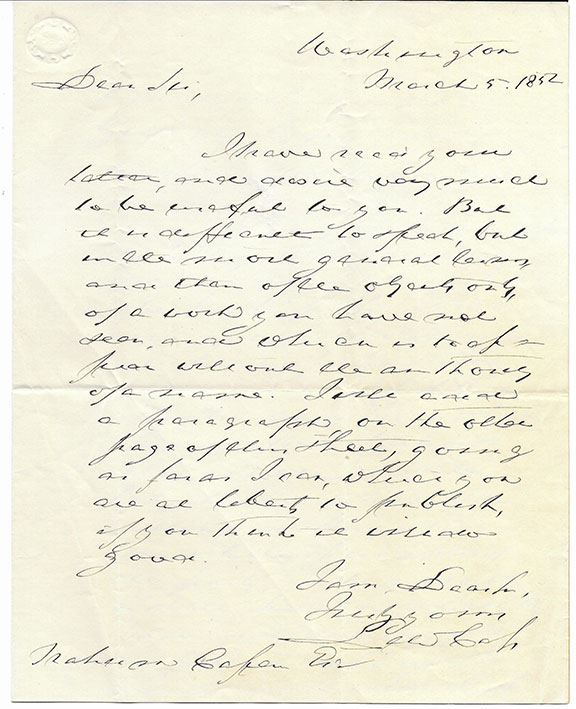 Washington
March 5. 1852
Dear Sir,
I have read your
letter, and desire very much
to be useful to you. But
it is difficult to speak, but
in the most general terms,
and then of the objects only,
of a work you have not
seen, and which is to ap=
pear without the authority
of a name. I will add
a paragraph, on the other
page of this sheet, going
as far as I can, which you
are at liberty to publish,
if you think it will do
good.
I am, Dear Sir,
Truly yours
Lew Cass
Nahum Capen Esq